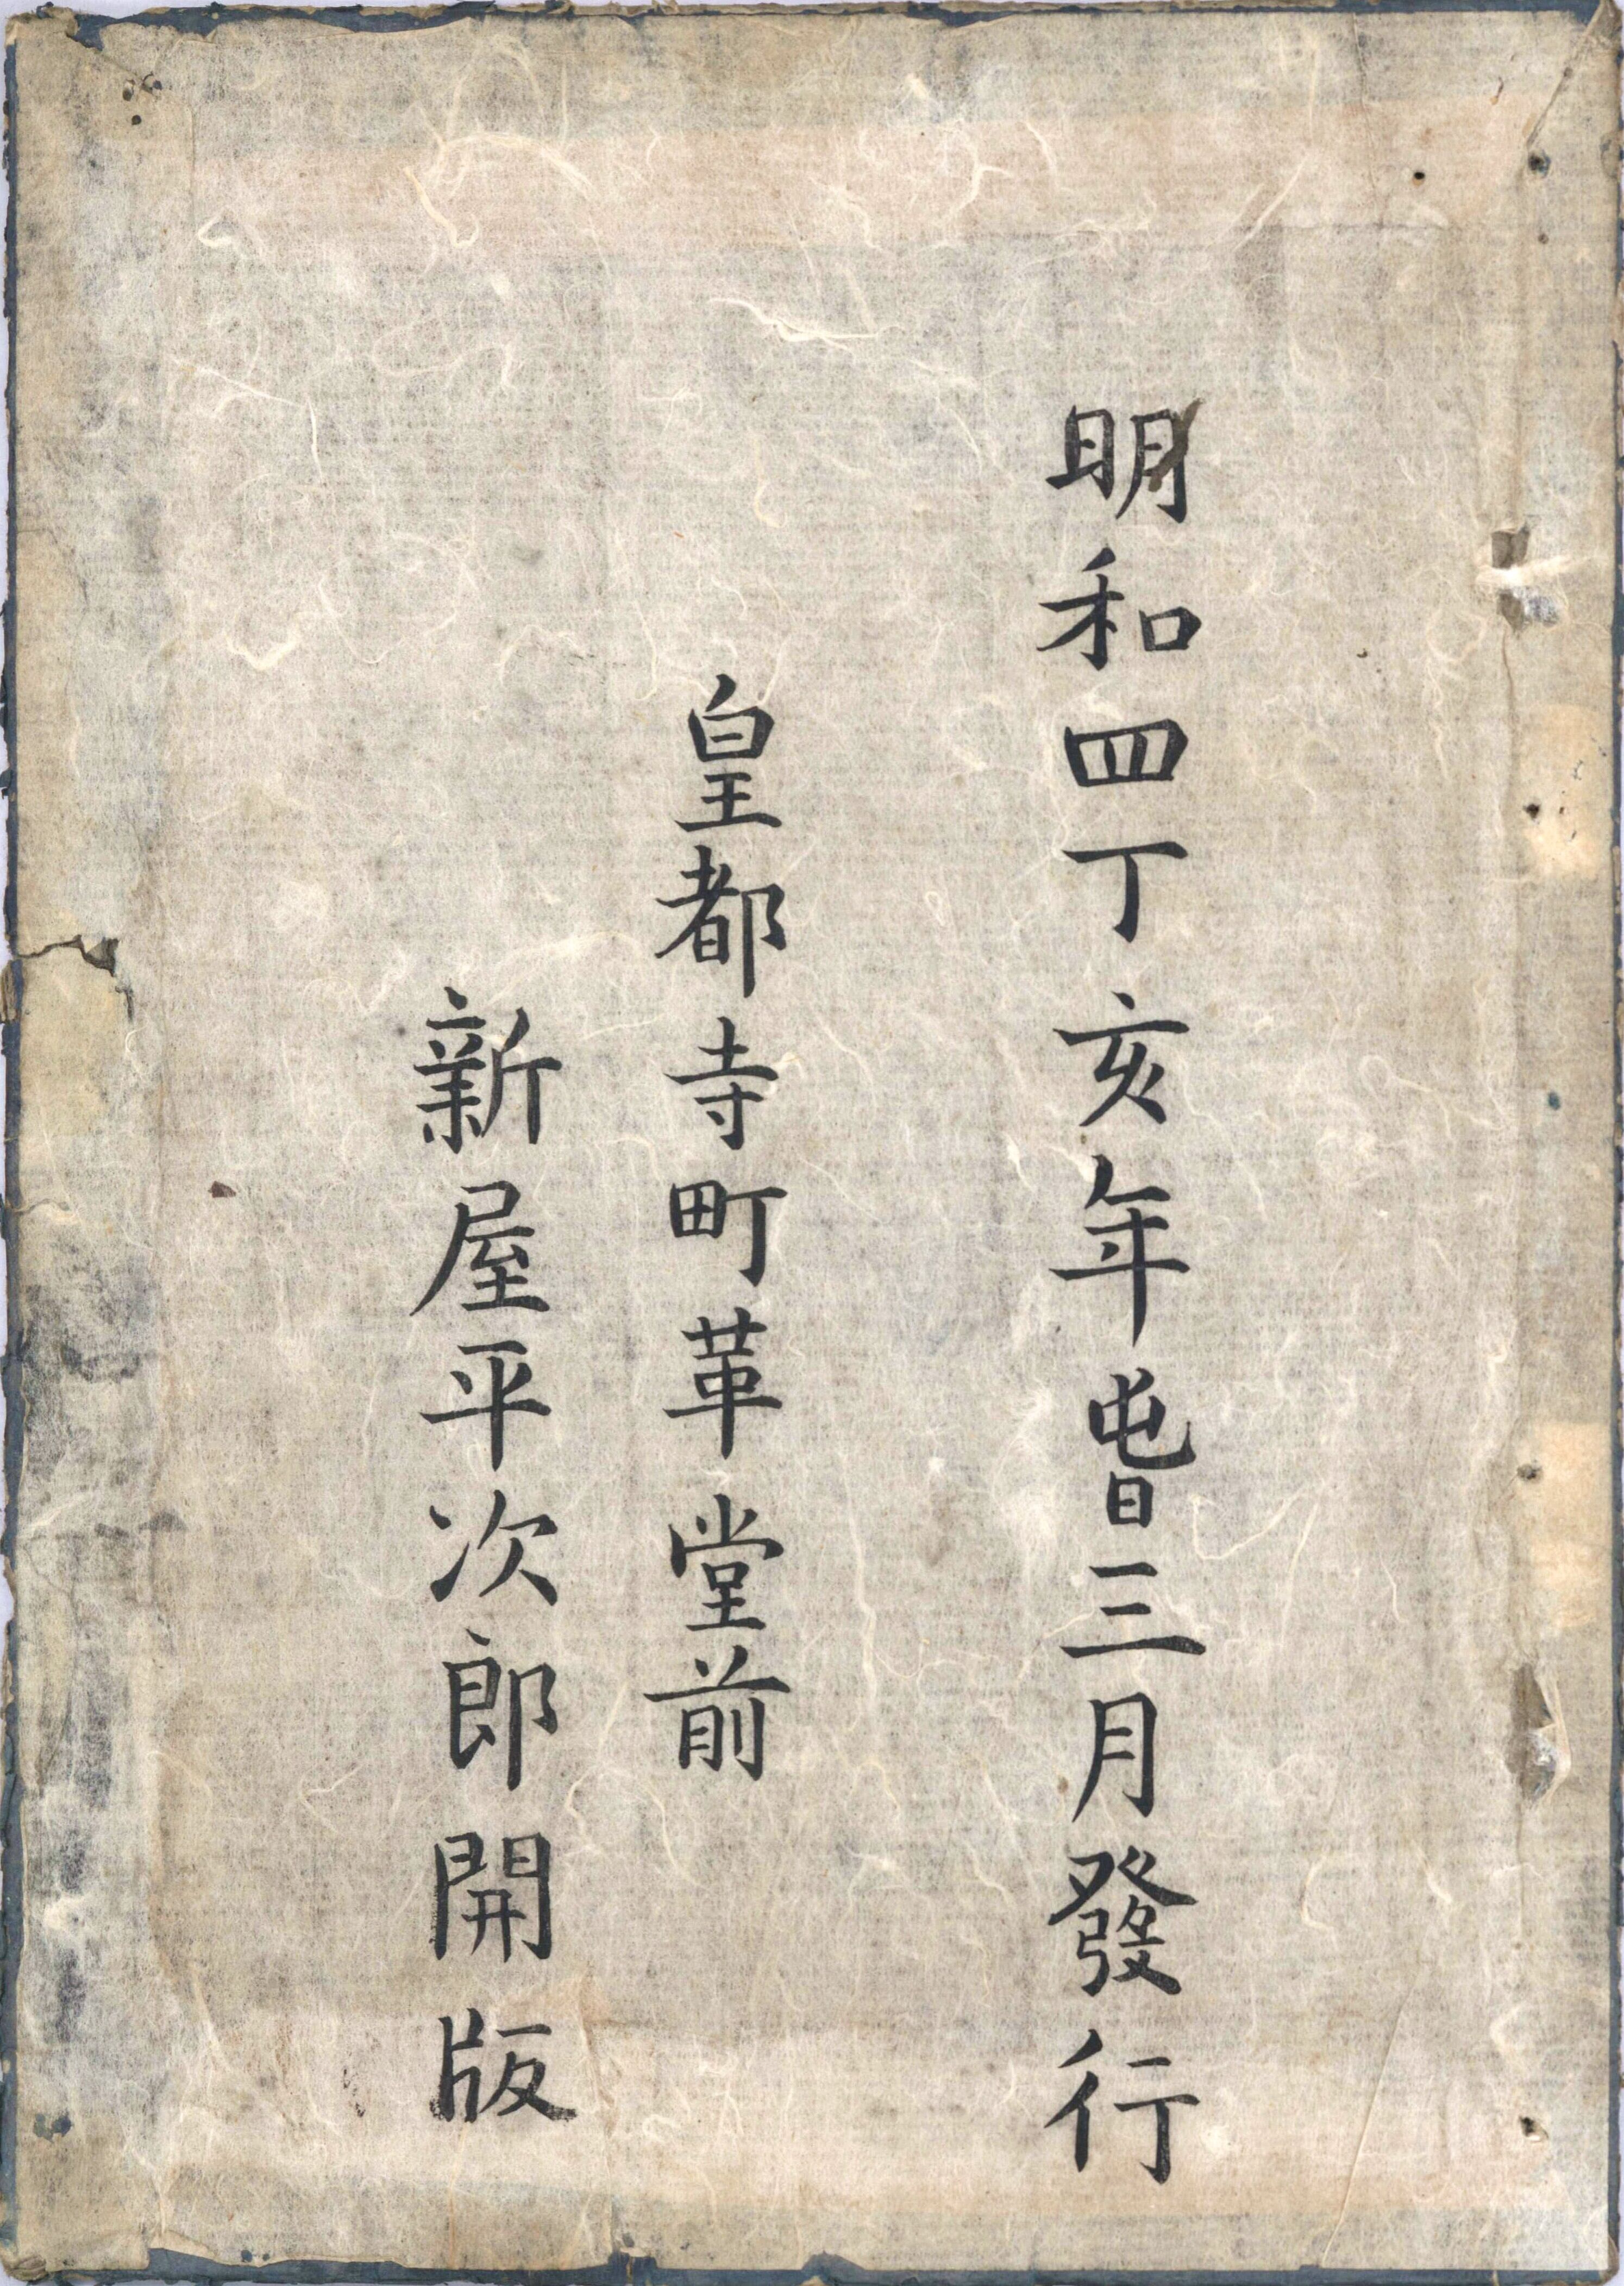 明和四丁亥年旾三月發行
皇都寺町革堂前
新屋平次郎開版